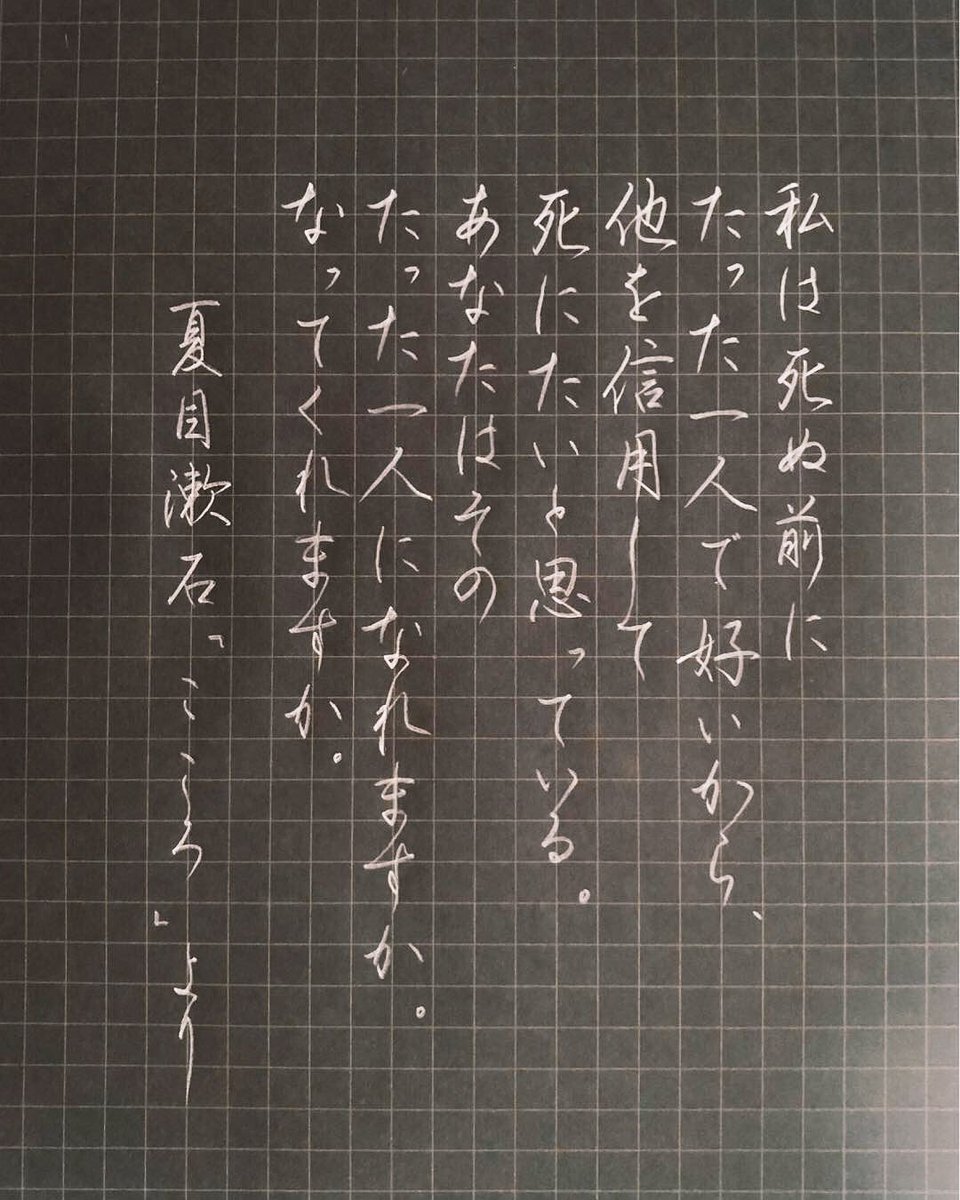 私は死ぬ前に
たった一人で好いから、
他を信用して
死にたいと思っている。
あなたはその
たった一人になれますか。
なってくれますか。
夏目漱石「こころ」より